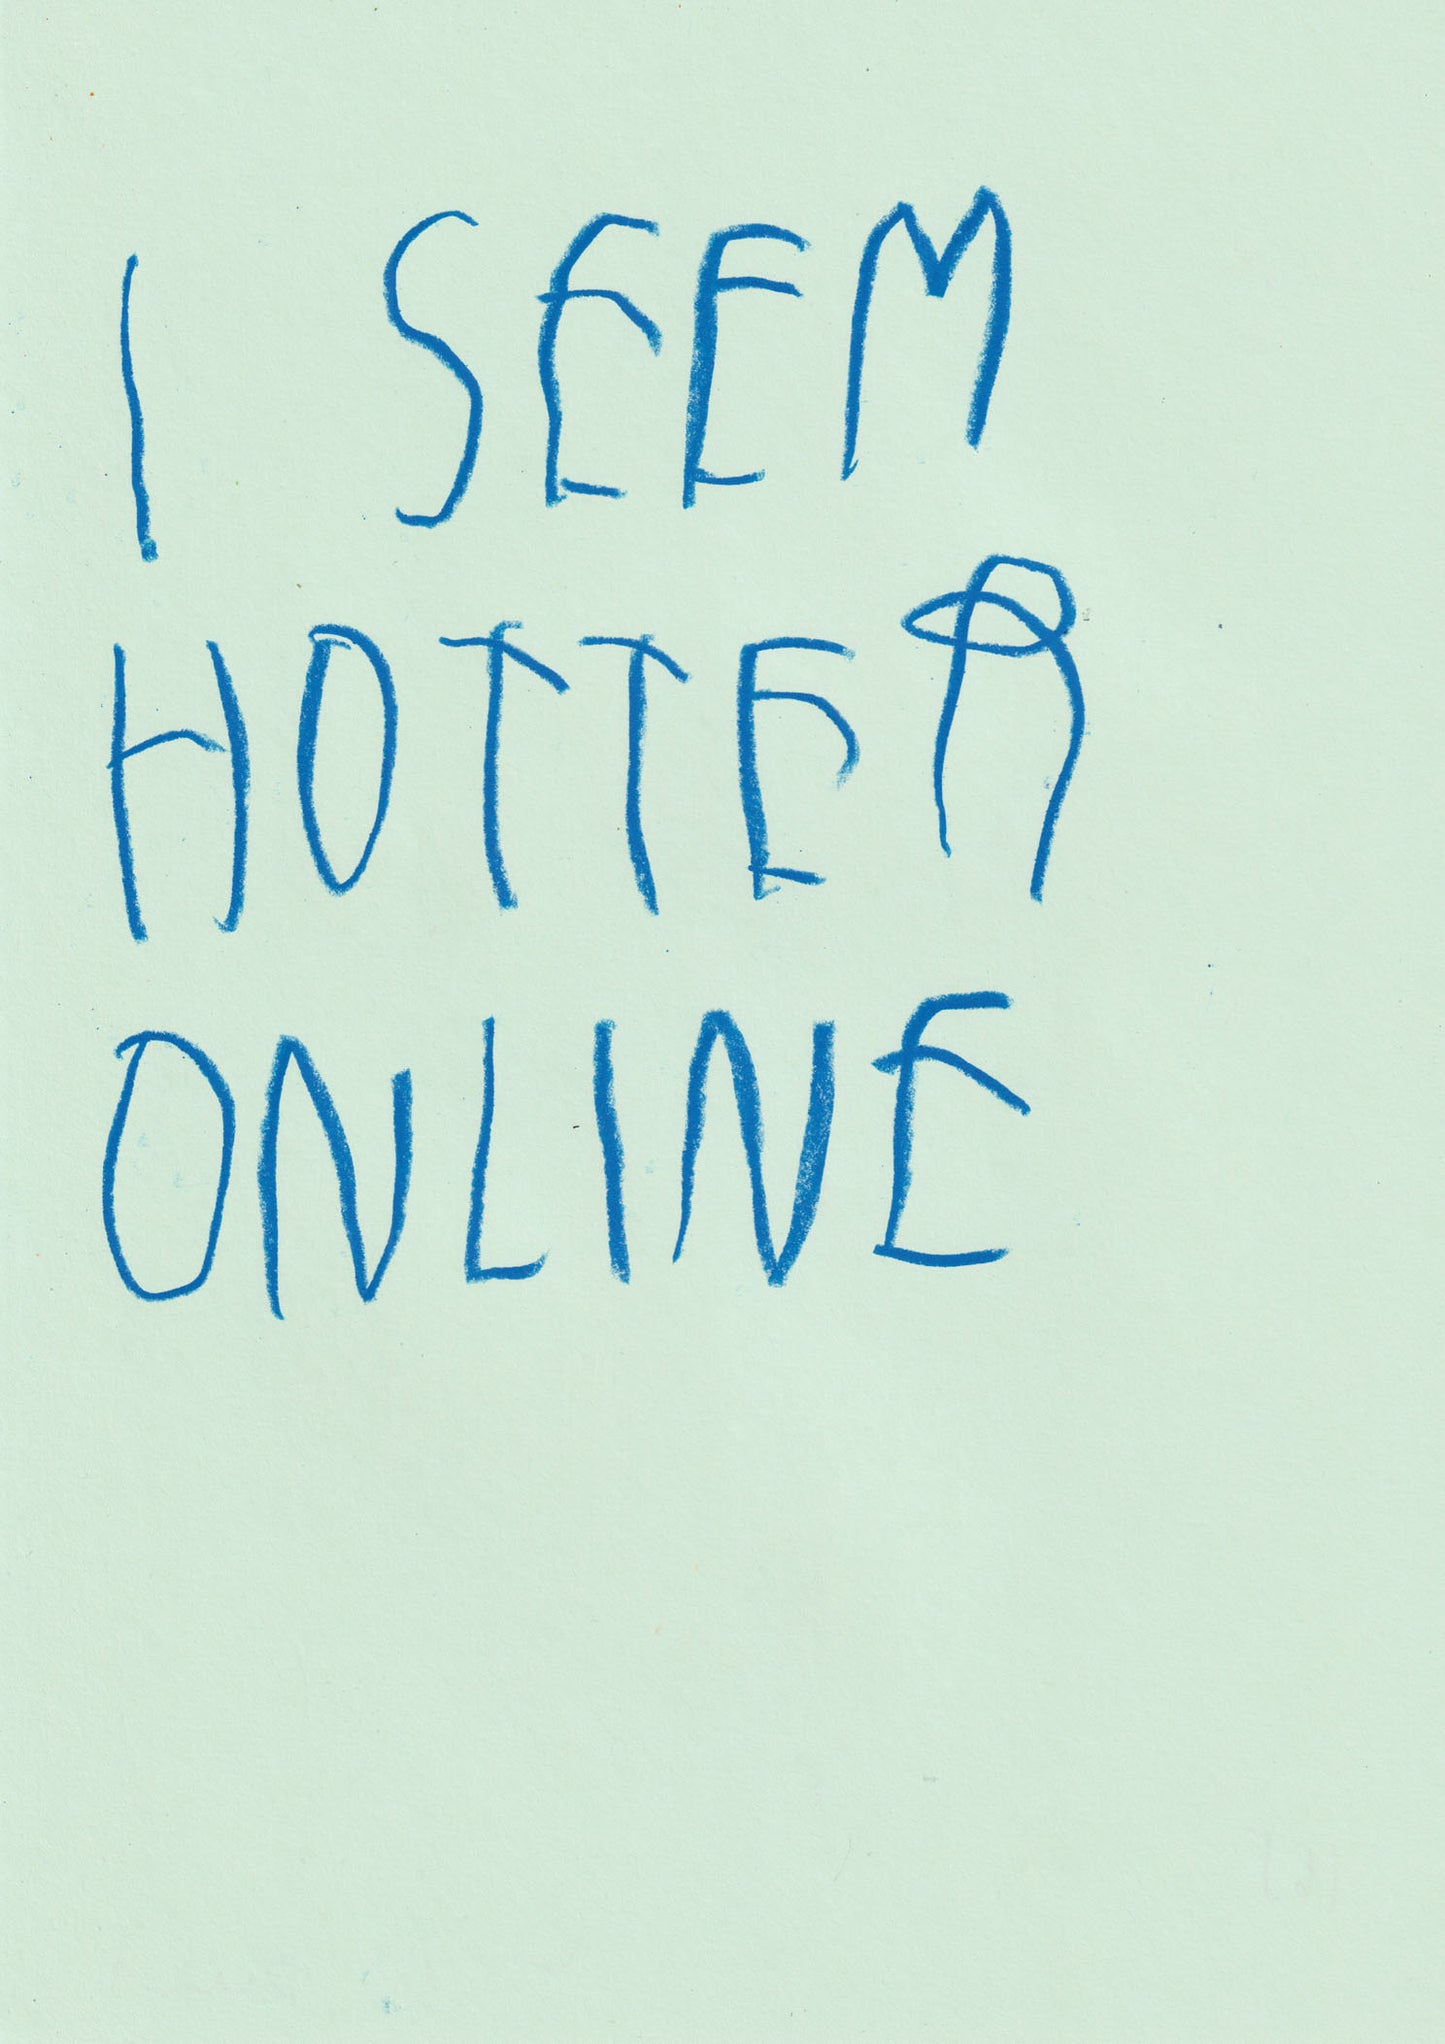 I SEEM
HOTTER
ONLINE